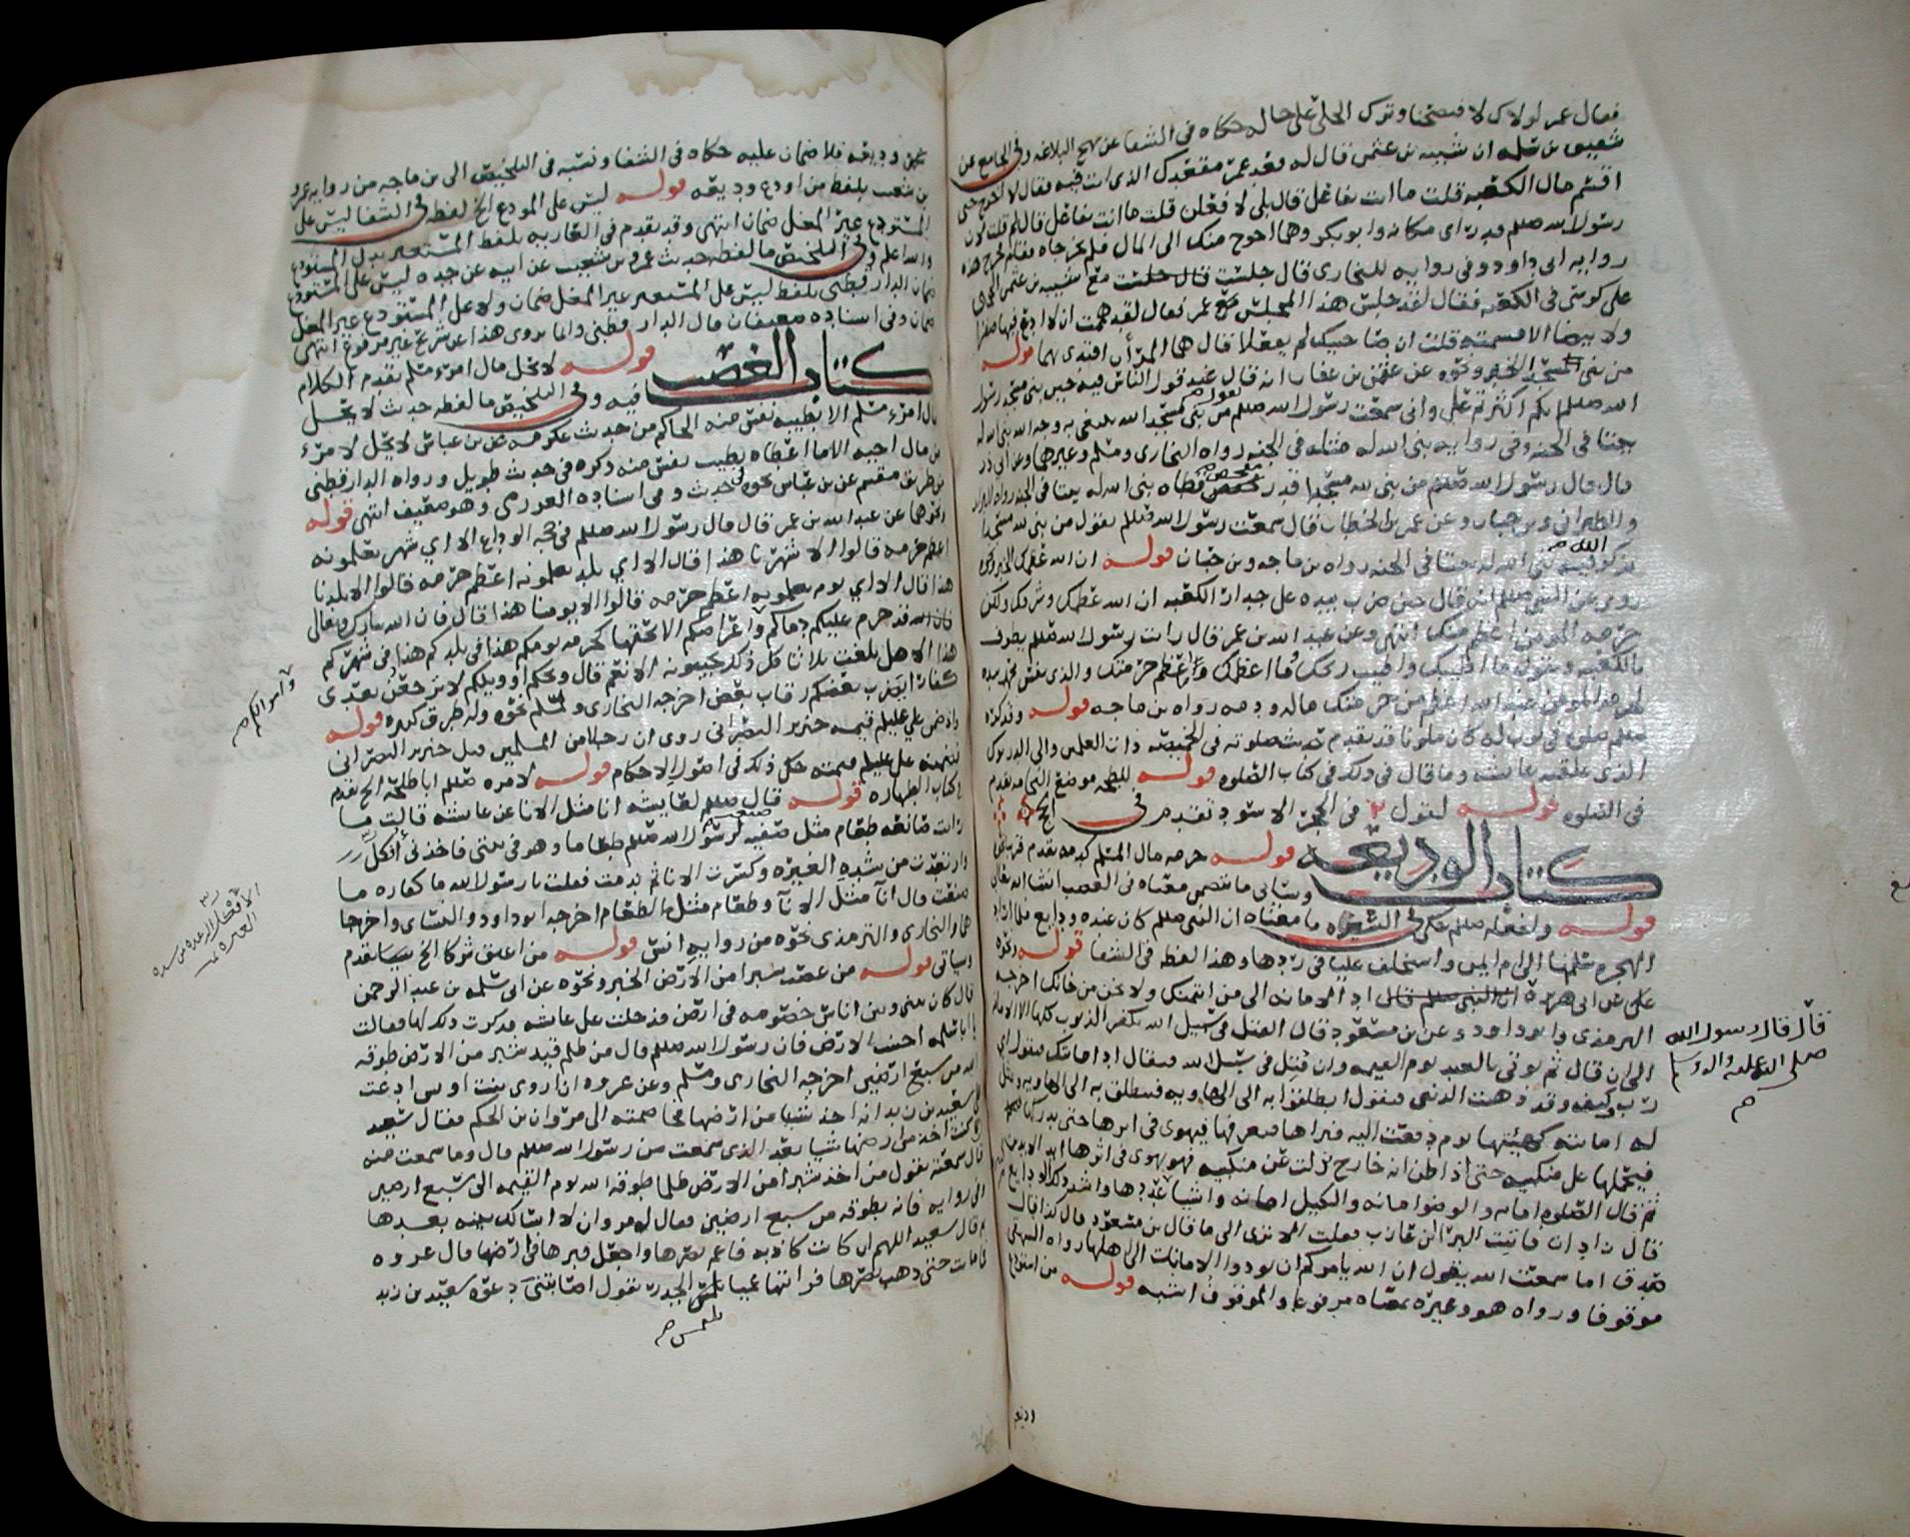 فقال عمر لولاك لافتضحنا وترك الحلي على حاله حكاه في الشفا عن نهج البلاغه وفي الجامع عن
شقيق بن سلمه ان شيبه بن عثمن قال له قعد عمر مقعدك الذي انت فيه فقال لا اخرج حتى
اقسم مال الكعبه قلت ما انت بفاعل قال بلى لافعلن قلت ما انت بفاعل قال لم قلت لان
رسول الله صللم قد راى مكانه وابو بكر وهما احوج منك الى المال فلم يخرجاه فقام فخرج هذه
روايه ابي داود وفي روايه للبخاري قال جلست قال جلست مع شيبه بن عثمن الحجبي
على كرسي في الكعبه فقال لقد جلس هذا المجلس مع عمر فقال لقد هممت ان لا ادع فيها صفرا
ولا بيضا الا قسمته قلت ان صاحبيك لم يفعلا قال هما المرأن اقتدي بهما قوله
من بنى مسجدا الخبر ونحوه عن عثمن بن عفان انه قال عند قول الناس فيه حين بنى مسجد رسول
الله صللم انكم اكثرتم علي واني سمعت رسول الله صللم يقول من بنى مسجدا لله يبتغي به وجه الله بنى الله له
بيتا في الجنه وفي روايه بنى الله له مثله في الجنه رواه البخاري ومسلم وغيرهما وعن ابي ذر
قال قال رسول الله صللم من بنى لله مسجدا قدر مفحص قطاه بنى الله له بيتا في الجنه رواه البزار
والطبراني وبن حبان وعن عمر بن الخطاب قال سمعت رسول الله صللم يقول من بنى لله مسجدا
يذكر فيه الله بنى الله له بيتا في الجنه رواه بن ماجه وبن حبان قوله ان الله عظمك الخبر وكما
روي عن النبي صللم انه قال حين ضرب بيده على جدار الكعبه ان الله عظمك وشرفك ولكن
حرمه المومن اعظم منك انتهى وعن عبد الله بن عمر قال رايت رسول الله صللم يطوف
بالكعبه ويقول ما اطيبك واطيب ريحك وما اعظمك واعظم حرمتك والذي نفس محمد بيده
لحرمه المومن عند الله اعظم من حرمتك ماله ودمه رواه بن ماجه قوله وقد كره
صللم صلوته في ثوب له كان ملونا قد تقدم حديث صلوته في الخميصه ذات العلمين والى الدرنوك
الذي علقته عايشه وما قال في ذلك في كتاب الصلوه قوله للبطحه موضع الن‍ا قد تقدم
في الصلوه قوله لقول ٢ في الحجر الاسود تقدم في الحج
كتاب الوديعه قوله حرمه مال المسلم كدمه تقدم قريبا
وسياتي ما يتضمن معناه في الغصب انشا الله تعالى
قوله ولفعله صللم حكى في الشفا ما معناه ان النبي صللم كان عنده ودايع فلما اراد
الهجره سلمها الى ام ايمن واستخلف عليا في ردها وهذا لفظه في الشفا قوله وعنه
على عن ابي هريره ان النبي صللم قال اد الامانه الى من ايتمنك ولا تخن من خانك اخرجه
الترمذي وابو داود وعن بن مسعود قال القتل في سبيل الله يكفر الذنوب كلها الا الامانه
الى ان قال ثم يوتى بالعبد يوم القيمه وان قتل في سبيل الله فيقال اد امانتك فيقول اي
رب كيف وقد ذهبت الدنيا فيقول انطلقوا به الى الهاويه فينطلق به الى الهاويه ويمثل
له امانته كهيئتها يوم دفعت اليه فيراها فيعرفها فيهوي في اثرها حتى يدركها
فيحملها على منكبيه حتى اذا ظن انه خارج زلت عن منكبيه فهو يهوي في اثرها ابد الابدين
ثم قال الصلوه امانه والوضوا امانه والكيل امانه واشيا عددها واشد ذلك الودايع
قال زاذان فاتيت البرا بن عازب فقلت الا ترى الى ما قال بن مسعود قال كذا قال
صدق اما سمعت الله يقول ان الله يامركم ان تودوا الامانات الى اهلها رواه البيهقي
موقوفا ورواه هو وغيره بمعناه مرفوعا والموقوف اشبه قوله من استودع
قال قال رسول الله
صلى الله عليه واله وسلم
اودع
يمن وديعه فلا ضمان عليه حكاه في الشفا ونسبه في التلخيص الى بن ماجه من روايه عمرو
بن شعيب بلفظ من اودع وديعه قوله ليس على المودع الخ لفظه في الشفا ليس على
المستودع غير المغل ضمان انتهى وقد تقدم في العاريه بلفظ المستعير بدل المستودع
والله اعلم وفي التلخيص ما لفظه حديث عمرو بن شعيب عن ابيه عن جده ليس على المستودع
ضمان الدارقطني بلفظ ليس على المستعير غير المغل ضمان ولا على المستودع غير المغل
ضمان وفي اسناده ضعيفان قال الدارقطني وانما يروى هذا عن شريح غير مرفوع انتهى
كتاب الغصب قوله لا يحل مال امرء مسلم تقدم الكلام
فيه وفي التلخيص ما لفظه حديث لا يحل
مال امرء مسلم الا بطيبه نفس منه الحاكم من حديث عكرمه عن بن عباس لا يحل لامرء
من مال اخيه الا ما اعطاه بطيب نفس منه ذكره في حديث طويل ورواه الدارقطني
من طريق مقسم عن بن عباس نحوه في حديث وفي اسناده العرزمي وهو ضعيف انتهى قوله
دعوهما عن عبد الله بن عمر قال قال رسول الله صللم في حجه الوداع الا اي شهر تعلمونه
اعظم حرمه قالوا الا شهرنا هذا قال الا اي بلد تعلمونه اعظم حرمه قالوا الا بلدنا
هذا قال الا اي يوم تعلمونه اعظم حرمه قالوا الا يومنا هذا قال فان الله تبارك وتعالى
فان الله قد حرم عليكم دماكم واعراضكم الا بحقها كحرمه يومكم هذا في بلدكم هذا في شهركم
هذا الا هل بلغت ثلاثا كل ذلك يجيبونه الا نعم قال ويحكم او ويلكم لا ترجعن بعدي
كفارا يضرب بعضكم رقاب بعض اخرجه البخاري ولمسلم نحوه وله طرق كثيره قوله
واذ قضى علي عليلم قيمه خنزير النصراني روي ان رجلا من المسلمين قتل خنزير النصراني
فضمنه علي عليلم قيمته حكى ذلك في اصول الاحكام قوله لامره صللم ابا طلحه الخ تقدم
في كتاب الطهاره قوله قال صللم لعايشه انا مثل الانا عن عايشه قالت ما
رايت صانعه طعام مثل صفيه صنعت لرسول الله صللم طعاما وهو في بيتي فاخذني افكل
وارتعدت من شده الغيره وكسرت الانا ثم ندمت فقلت يا رسول الله ما كفاره ما
صنعت قال انآ مثل الانآ وطعام مثل الطعام اخرجه ابو داود والنساي واخرجا
هما والبخاري والترمذي نحوه من روايه انس قوله من اعتق شركا الخ سيا تقدم
وسياتي قوله من غصب شبرا من الارض الخبر ونحوه عن ابي سلمه بن عبد الرحمن
قال كان بيني وبين اناس خصومه في ارض فدخلت على عايشه فذكرت ذلك لها فقالت
يا ابا سلمه اجتنب الارض فان رسول الله صللم قال من ظلم قيد شبر من الارض طوقه
الله من سبع ارضين اخرجه البخاري ومسلم وعن عروه ان اروى بنت اوس ادعت
على سعيد بن زيد انه اخذ شيا من ارضها فخاصمته الى مروان بن الحكم فقال سعيد
انا كنت اخذ من ارضها شيا بعد الذي سمعت من رسول الله صللم قال وما سمعت منه
قال سمعته يقول من اخذ شبرا من الارض ظلما طوقه الله يوم القيمه الى سبع ارضين
وفي روايه فانه يطوقه من سبع ارضين فقال له مروان لا اسالك بينه بعدها
ثم قال سعيد اللهم ان كانت كاذبه فاعم بصرها واجعل قبرها في ارضها قال عروه
فما ماتت حتى ذهب بصرها فرايتها عميا تلتمس الجدر تقول اصابتني دعوه سعيد بن زيد
تلتمس صح
واموالكم صح
الافكل الرعده من شده
الغيره